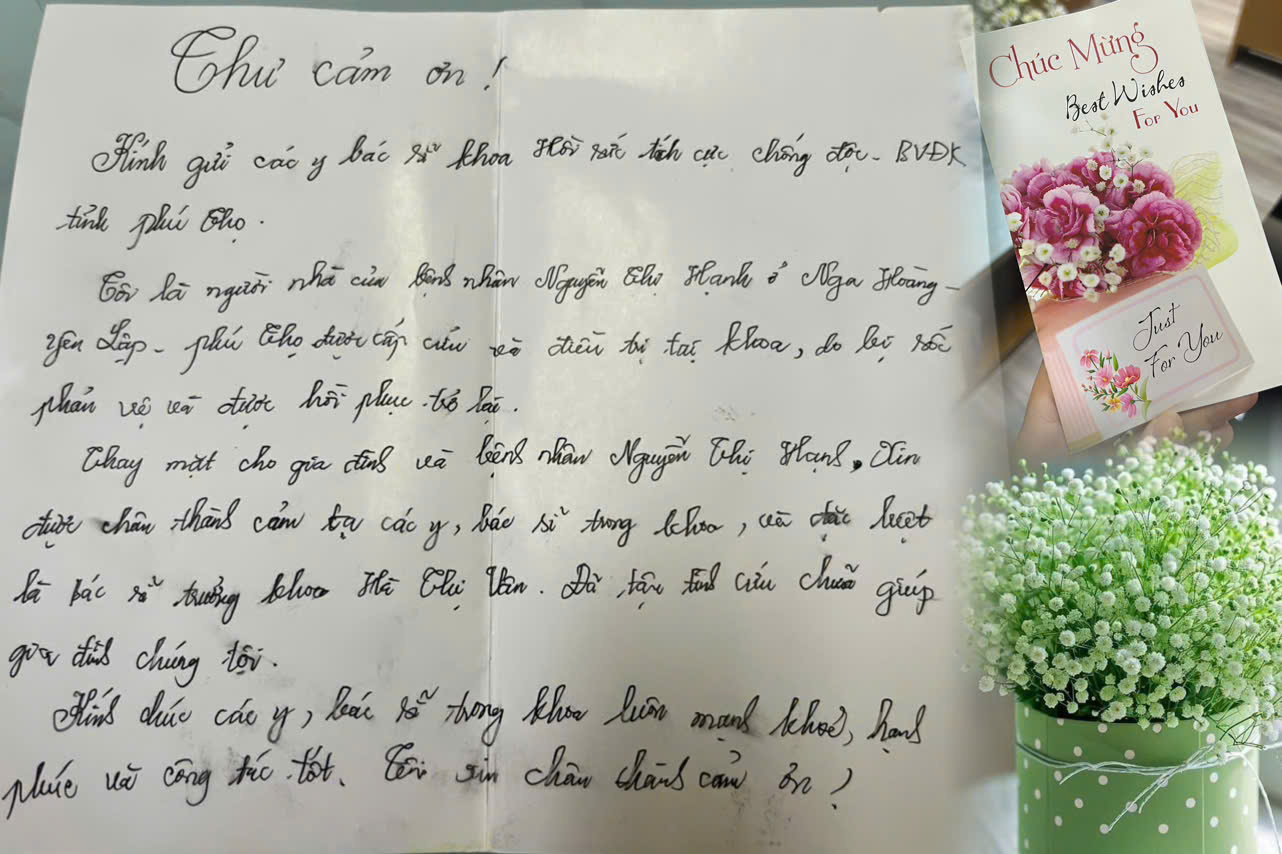 Thư cảm ơn!
Kính gửi các y bác sĩ khoa Hồi sức tích cực chống độc - BVĐK
tỉnh phú thọ.
Tôi là người nhà của bệnh nhân Nguyễn Thị Hạnh ở Nga Hoàng -
Yên Lập - phú thọ được cấp cứu và điều trị tại khoa, do bị sốc
phản vệ và được hồi phục trở lại.
Thay mặt cho gia đình và bệnh nhân Nguyễn Thị Hạnh, Xin
được chân thành cảm tạ các y, bác sĩ trong khoa, và đặc biệt
là bác sĩ trưởng khoa Hà Thị Vân. Đã tận tình cứu chữa giúp
gia đình chúng tôi.
Kính chúc các y, bác sĩ trong khoa luôn mạnh khoẻ, hạnh
phúc và công tác tốt. Tôi xin chân thành cảm ơn!
Chúc Mừng
Best Wishes
For You
Just
For You